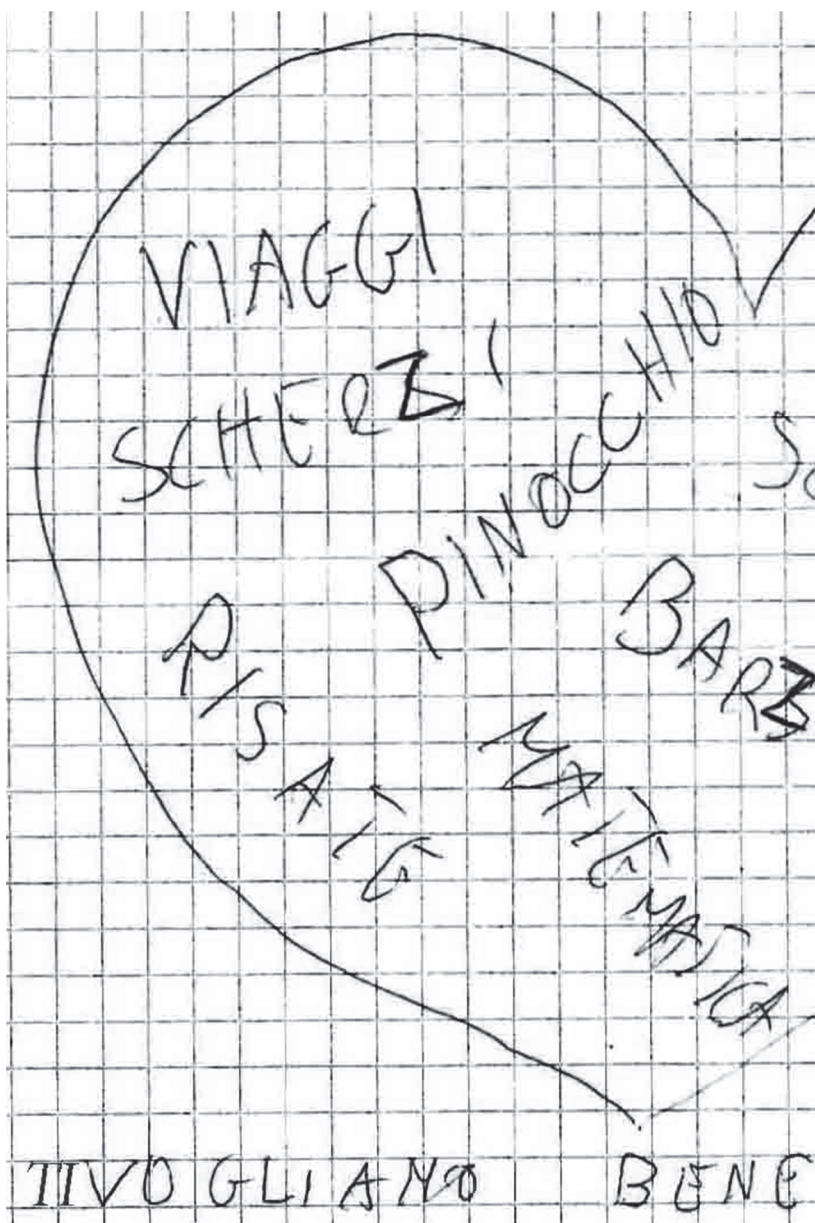 VIAGGI
SCHERZI
PINOCCHIO
SC
BARZ
RISATE
MATEMATICA
TI VOGLIAMO BENE